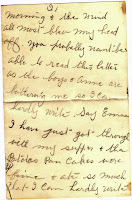 morning & the wind
all most blew my head
off you probally wont be
able to read this letter
as the boys & Anna are
bothering me so I can
hardly write Say Emma
I have just got through
with my supper & the
Potatoe Pan Cakes were
fine & ate so much
that I can Hardly write